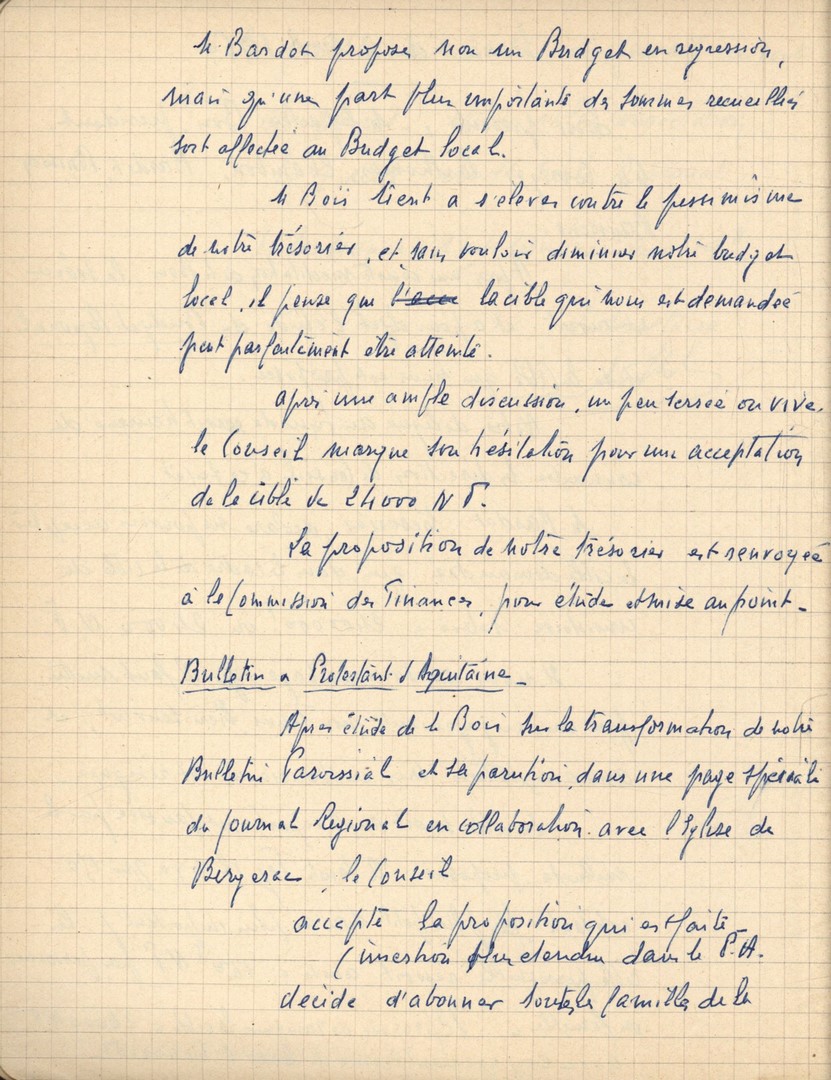 M. Bardot propose non un Budget en regression,
mais qu'une part plus importante des sommes recueillies
soit affectée au Budget local.
M Bois tient a s'élever contre le pessimisme
de notre trésorier, et sans vouloir diminuer notre budget
local, il pense que la cible qui nous est demandée
peut parfaitement etre atteinte.
après une ample discussion, un peu serrée ou vive.
le Conseil marque son hésitation pour une acceptation
de la cible de 24000 NF.
La proposition de notre trésorier est renvoyée
à la Commission des Finances, pour étude et mise au point -
Bulletin Protestant d'Aquitaine -
Apres étude de M Bois sur la transformation de notre
Bulletin Paroissial et sa parution, dans une page spéciale
du journal Regional en collaboration avec l'Eglise de
Bergerac, le Conseil
accepte la proposition qui est faite -
(insertion plus etendue dans le P.A.
decide d'abonner toutes les familles de la